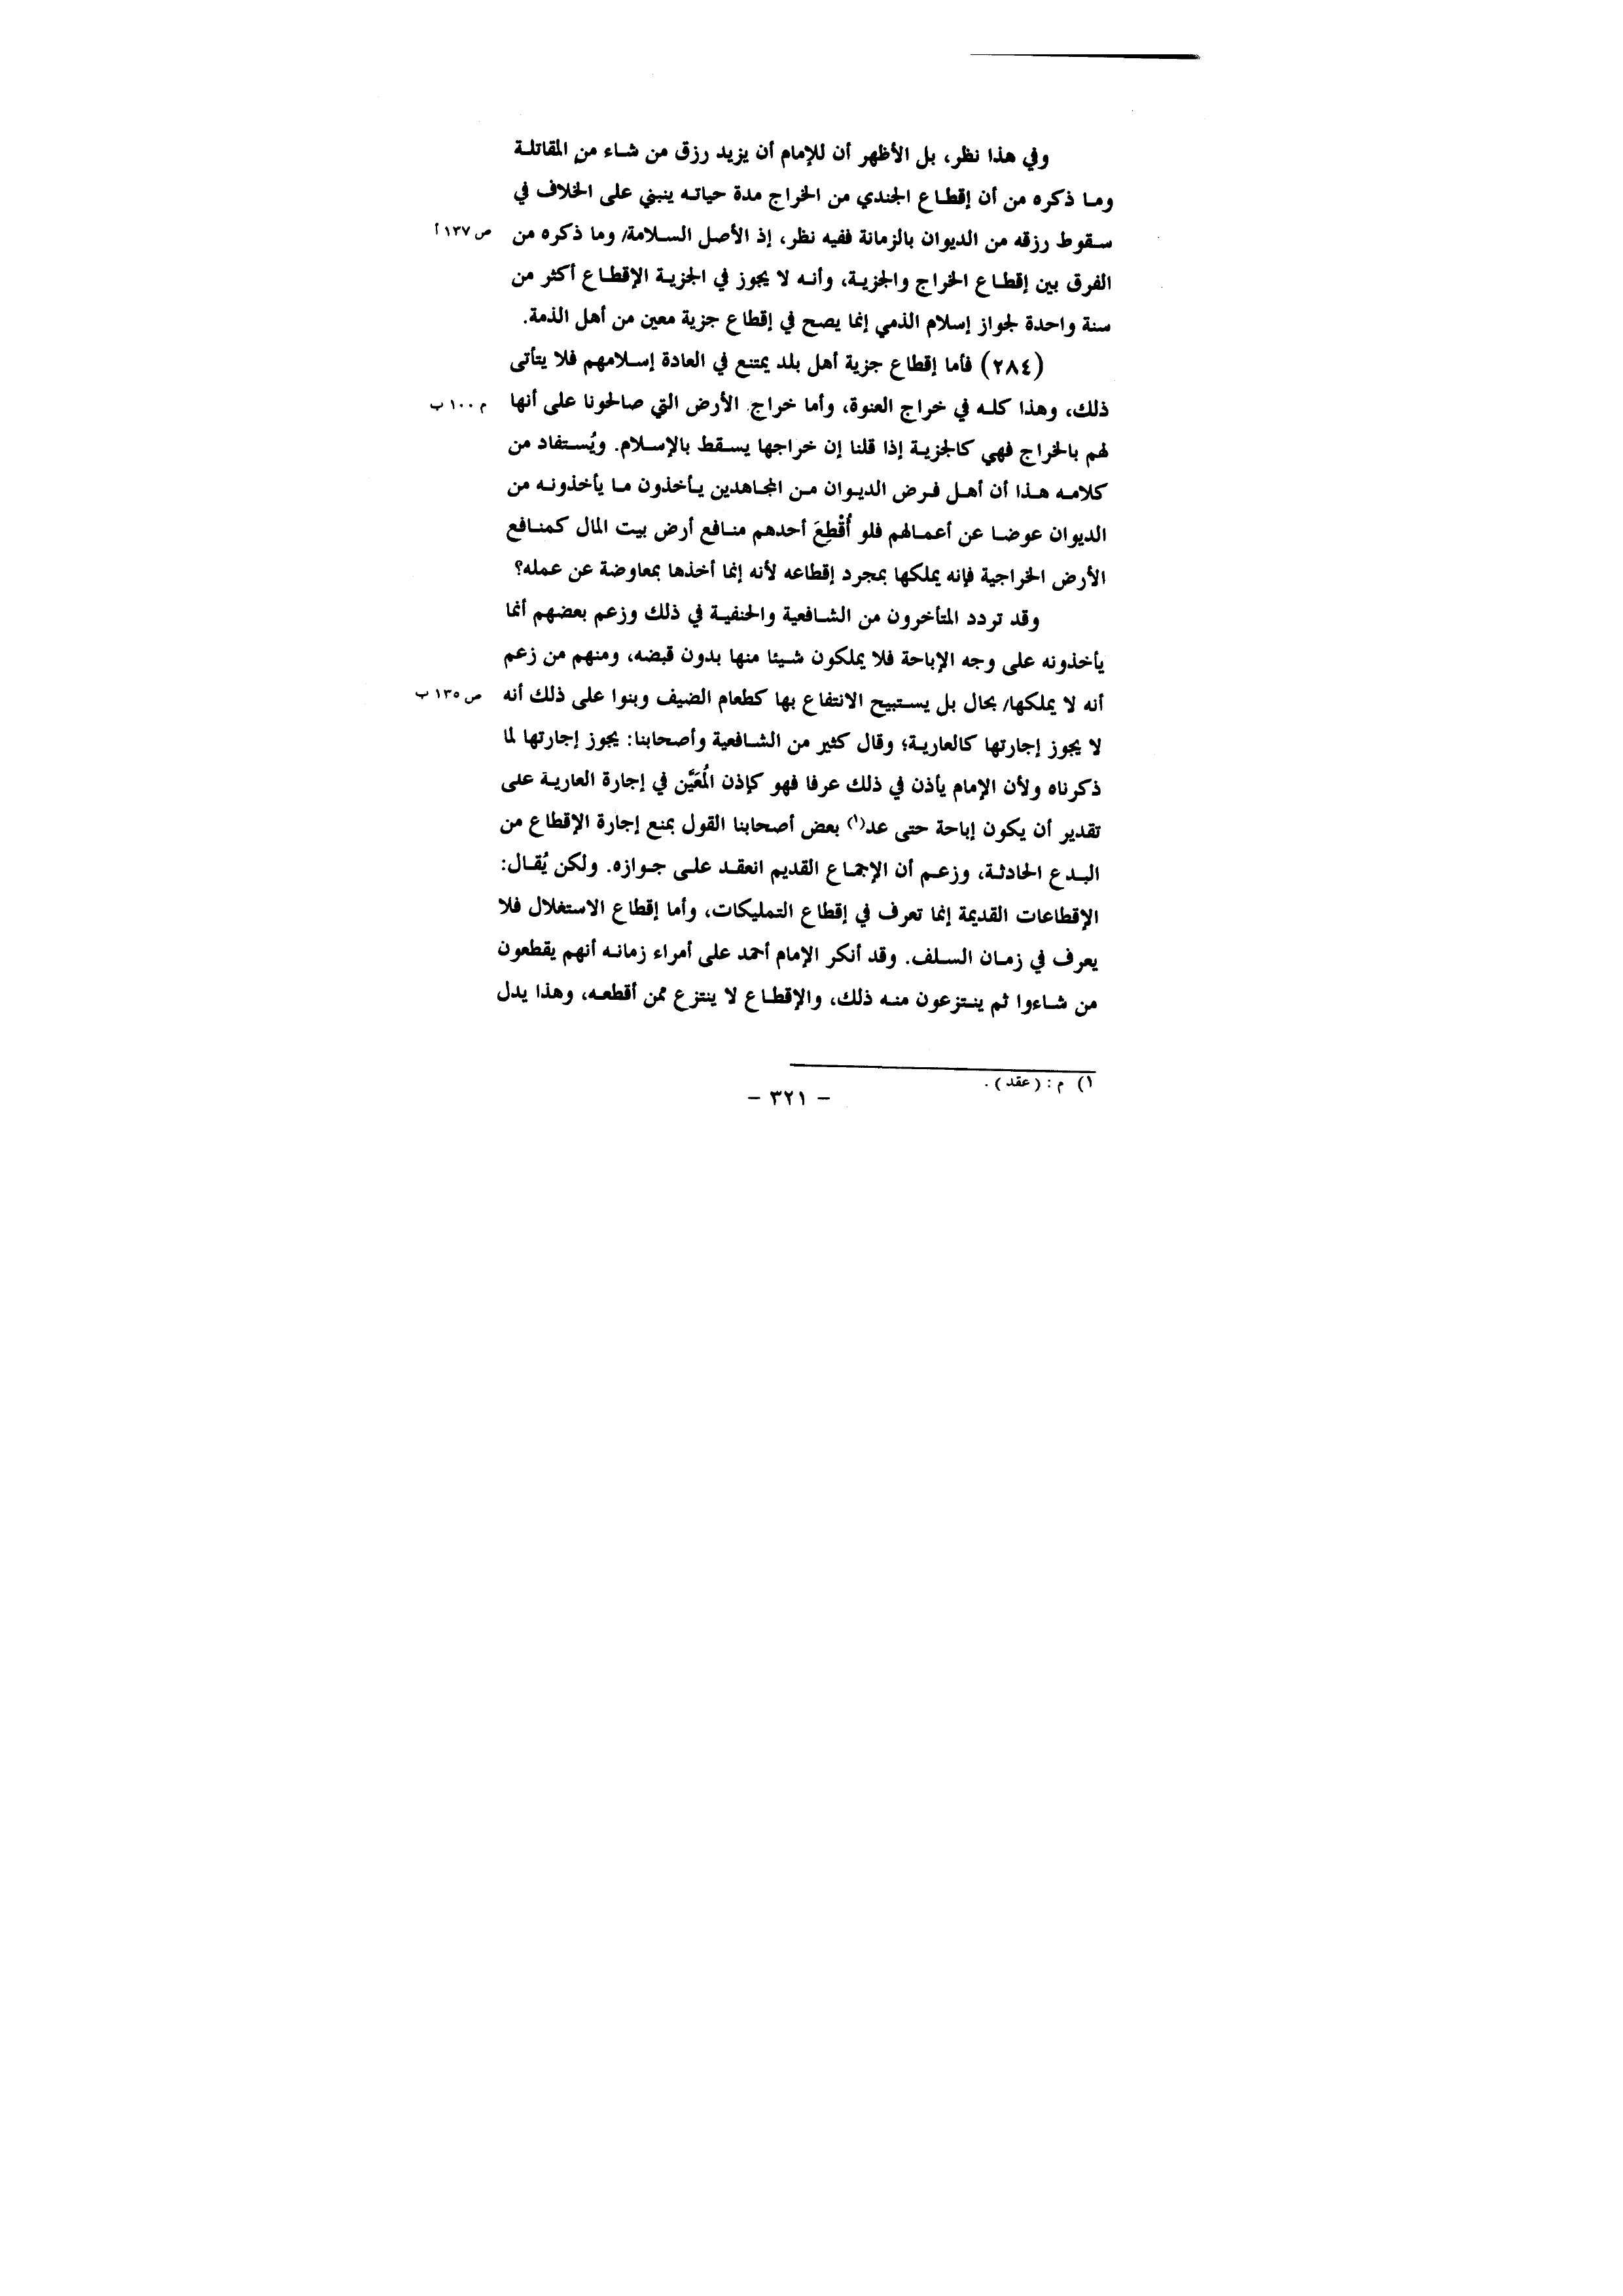 وفي هذا نظر، بل الأظهر أن للإمام أن يزيد رزق من شاء من المقاتلة
وما ذكره من أن إقطاع الجندي من الخراج مدة حياته ينبني على الخلاف في
سقوط رزقه من الديوان بالزمانة ففيه نظر، إذ الأصل السلامة/ وما ذكره من ص ١٣٧ أ
الفرق بين إقطاع الخراج والجزية، وأنه لا يجوز في الجزية الإقطاع أكثر من
سنة واحدة لجواز إسلام الذمي إنما يصح في إقطاع جزية معين من أهل الذمة.
(٢٨٤) فأما إقطاع جزية أهل بلد يمتنع في العادة إسلامهم فلا يتأتى
ذلك، وهذا كله في خراج العنوة، وأما خراج الأرض التي صالحونا على أنها م ١٠٠ ب
لهم بالخراج فهي كالجزية إذا قلنا إن خراجها يسقط بالإسلام. ويُستفاد من
كلامه هذا أن أهل فرض الديوان من المجاهدين يأخذون ما يأخذونه من
الديوان عوضا عن أعمالهم فلو أُقْطِعَ أحدهم منافع أرض بيت المال كمنافع
الأرض الخراجية فإنه يملكها بمجرد إقطاعه لأنه إنما أخذها بمعاوضة عن عمله؟
وقد تردد المتأخرون من الشافعية والحنفية في ذلك وزعم بعضهم أنما
يأخذونه على وجه الإباحة فلا يملكون شيئا منها بدون قبضه، ومنهم من زعم
أنه لا يملكها/ بحال بل يستبيح الانتفاع بها كطعام الضيف وبنوا على ذلك أنه ص ١٣٥ ب
لا يجوز إجارتها كالعارية؛ وقال كثير من الشافعية وأصحابنا: يجوز إجارتها لما
ذكرناه ولأن الإمام يأذن في ذلك عرفا فهو كإذن المُعَيَّن في إجارة العارية على
تقدير أن يكون إباحة حتى عد(١) بعض أصحابنا القول بمنع إجارة الإقطاع من
البدع الحادثة، وزعم أن الإجماع القديم انعقد على جوازه. ولكن يُقال:
الإقطاعات القديمة إنما تعرف في إقطاع التمليكات، وأما إقطاع الاستغلال فلا
يعرف في زمان السلف. وقد أنكر الإمام أحمد على أمراء زمانه أنهم يقطعون
من شاءوا ثم ينتزعون منه ذلك، والإقطاع لا ينتزع ممن أقطعه، وهذا يدل
١) م : (عقد).
– ٣٢١ –